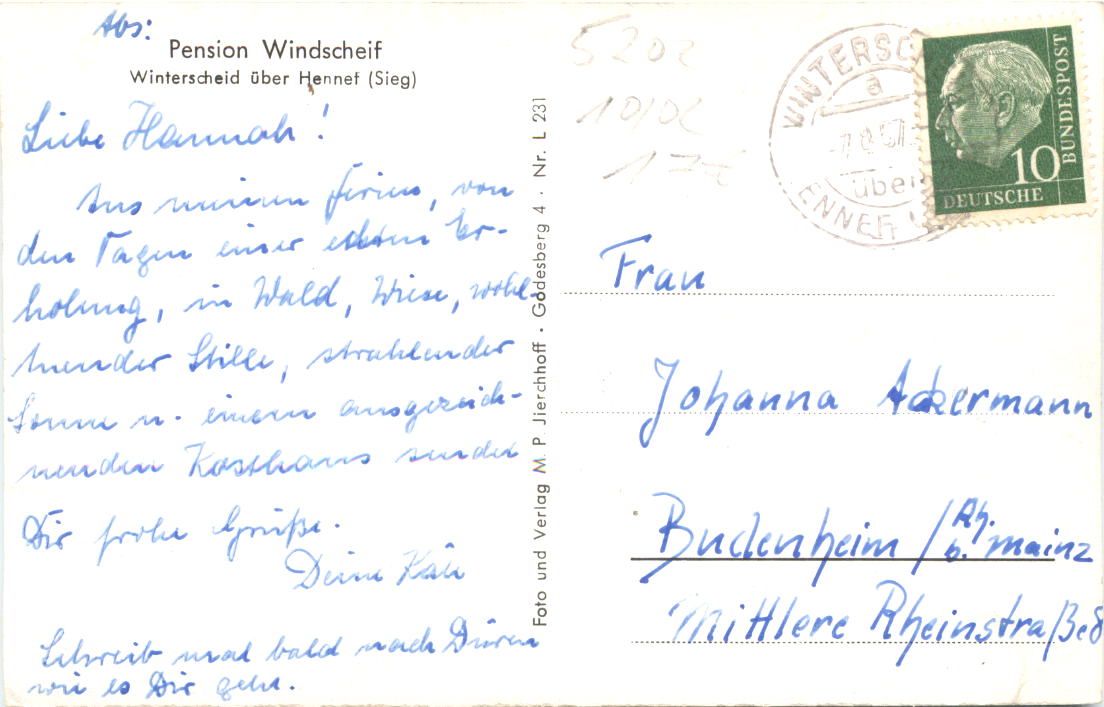 Abs:
Pension Windscheif
Winterscheid über Hennef (Sieg)
Liebe Hannah!
Aus meinen Ferien, von
den Tagen einer echten Er-
holung, in Wald, Wiese, wohl-
tuender Stille, strahlender
Sonne u. einem ausgezeich-
nenden Kosthaus sendet
Dir frohe Grüße.
Deine Käti
Schreib mal bald nach Düren
wie es Dir geht.
Foto und Verlag M. P. Jierchhoff · Godesberg 4 · Nr. L 231
5202
10/02
WINTERSC
a
57
über
ENNEF
10
DEUTSCHE
BUNDESPOST
Frau
Johanna Ackermann
Budenheim / Rh.
b. Mainz
Mittlere Rheinstraße 8